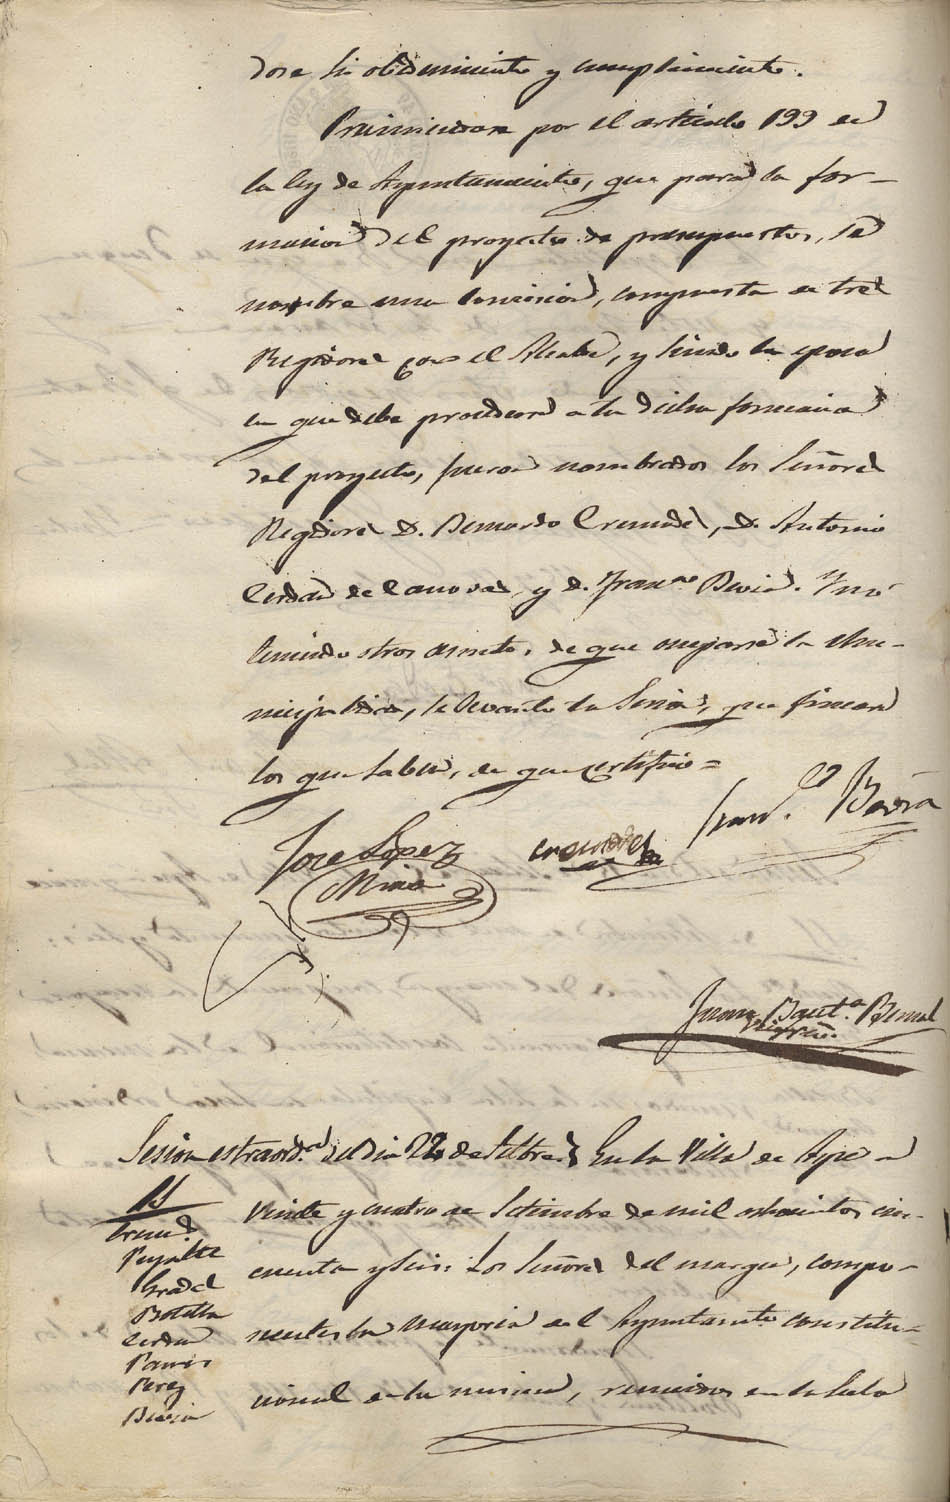 dose su obedecimiento y cumplimiento.
Previniendose por el articulo 199 de
la ley de Ayuntamientos, que para la for-
macion del proyecto de presupuestos, se
nombre una Comision, compuesta de tres
Regidores con el Alcalde, y siendo la epoca
en que debe procederse a la dicha formacion
del proyecto, fueron nombrados los Señores
Regidores D. Bernardo Cremades, D. Antonio
Cerdan de Canovas, y D. Franco. Bevia. Y no
teniendo otros asuntos, de que ocuparse la Mu-
nicipalidad, se levantó la Sesion, que firman
los que saben, de que certifico =
Jose Lopez
Mira
Cremades
Franco. Bevia
Juan Bauta. Bernal
Sesion estraorda. del Dia 24 de Setbre. En la Villa de Aspe a
SS
veinte y cuatro de Setiembre de mil ochocientos cin-
Cremds.
Pujalte
cuenta y seis: Los Señores del margen, compo-
Grades
Botella
nentes la mayoria del Ayuntamto. constitu-
Cerdan
Pavia
Perez
cional de la misma, reunidos en la Sala
Bevia